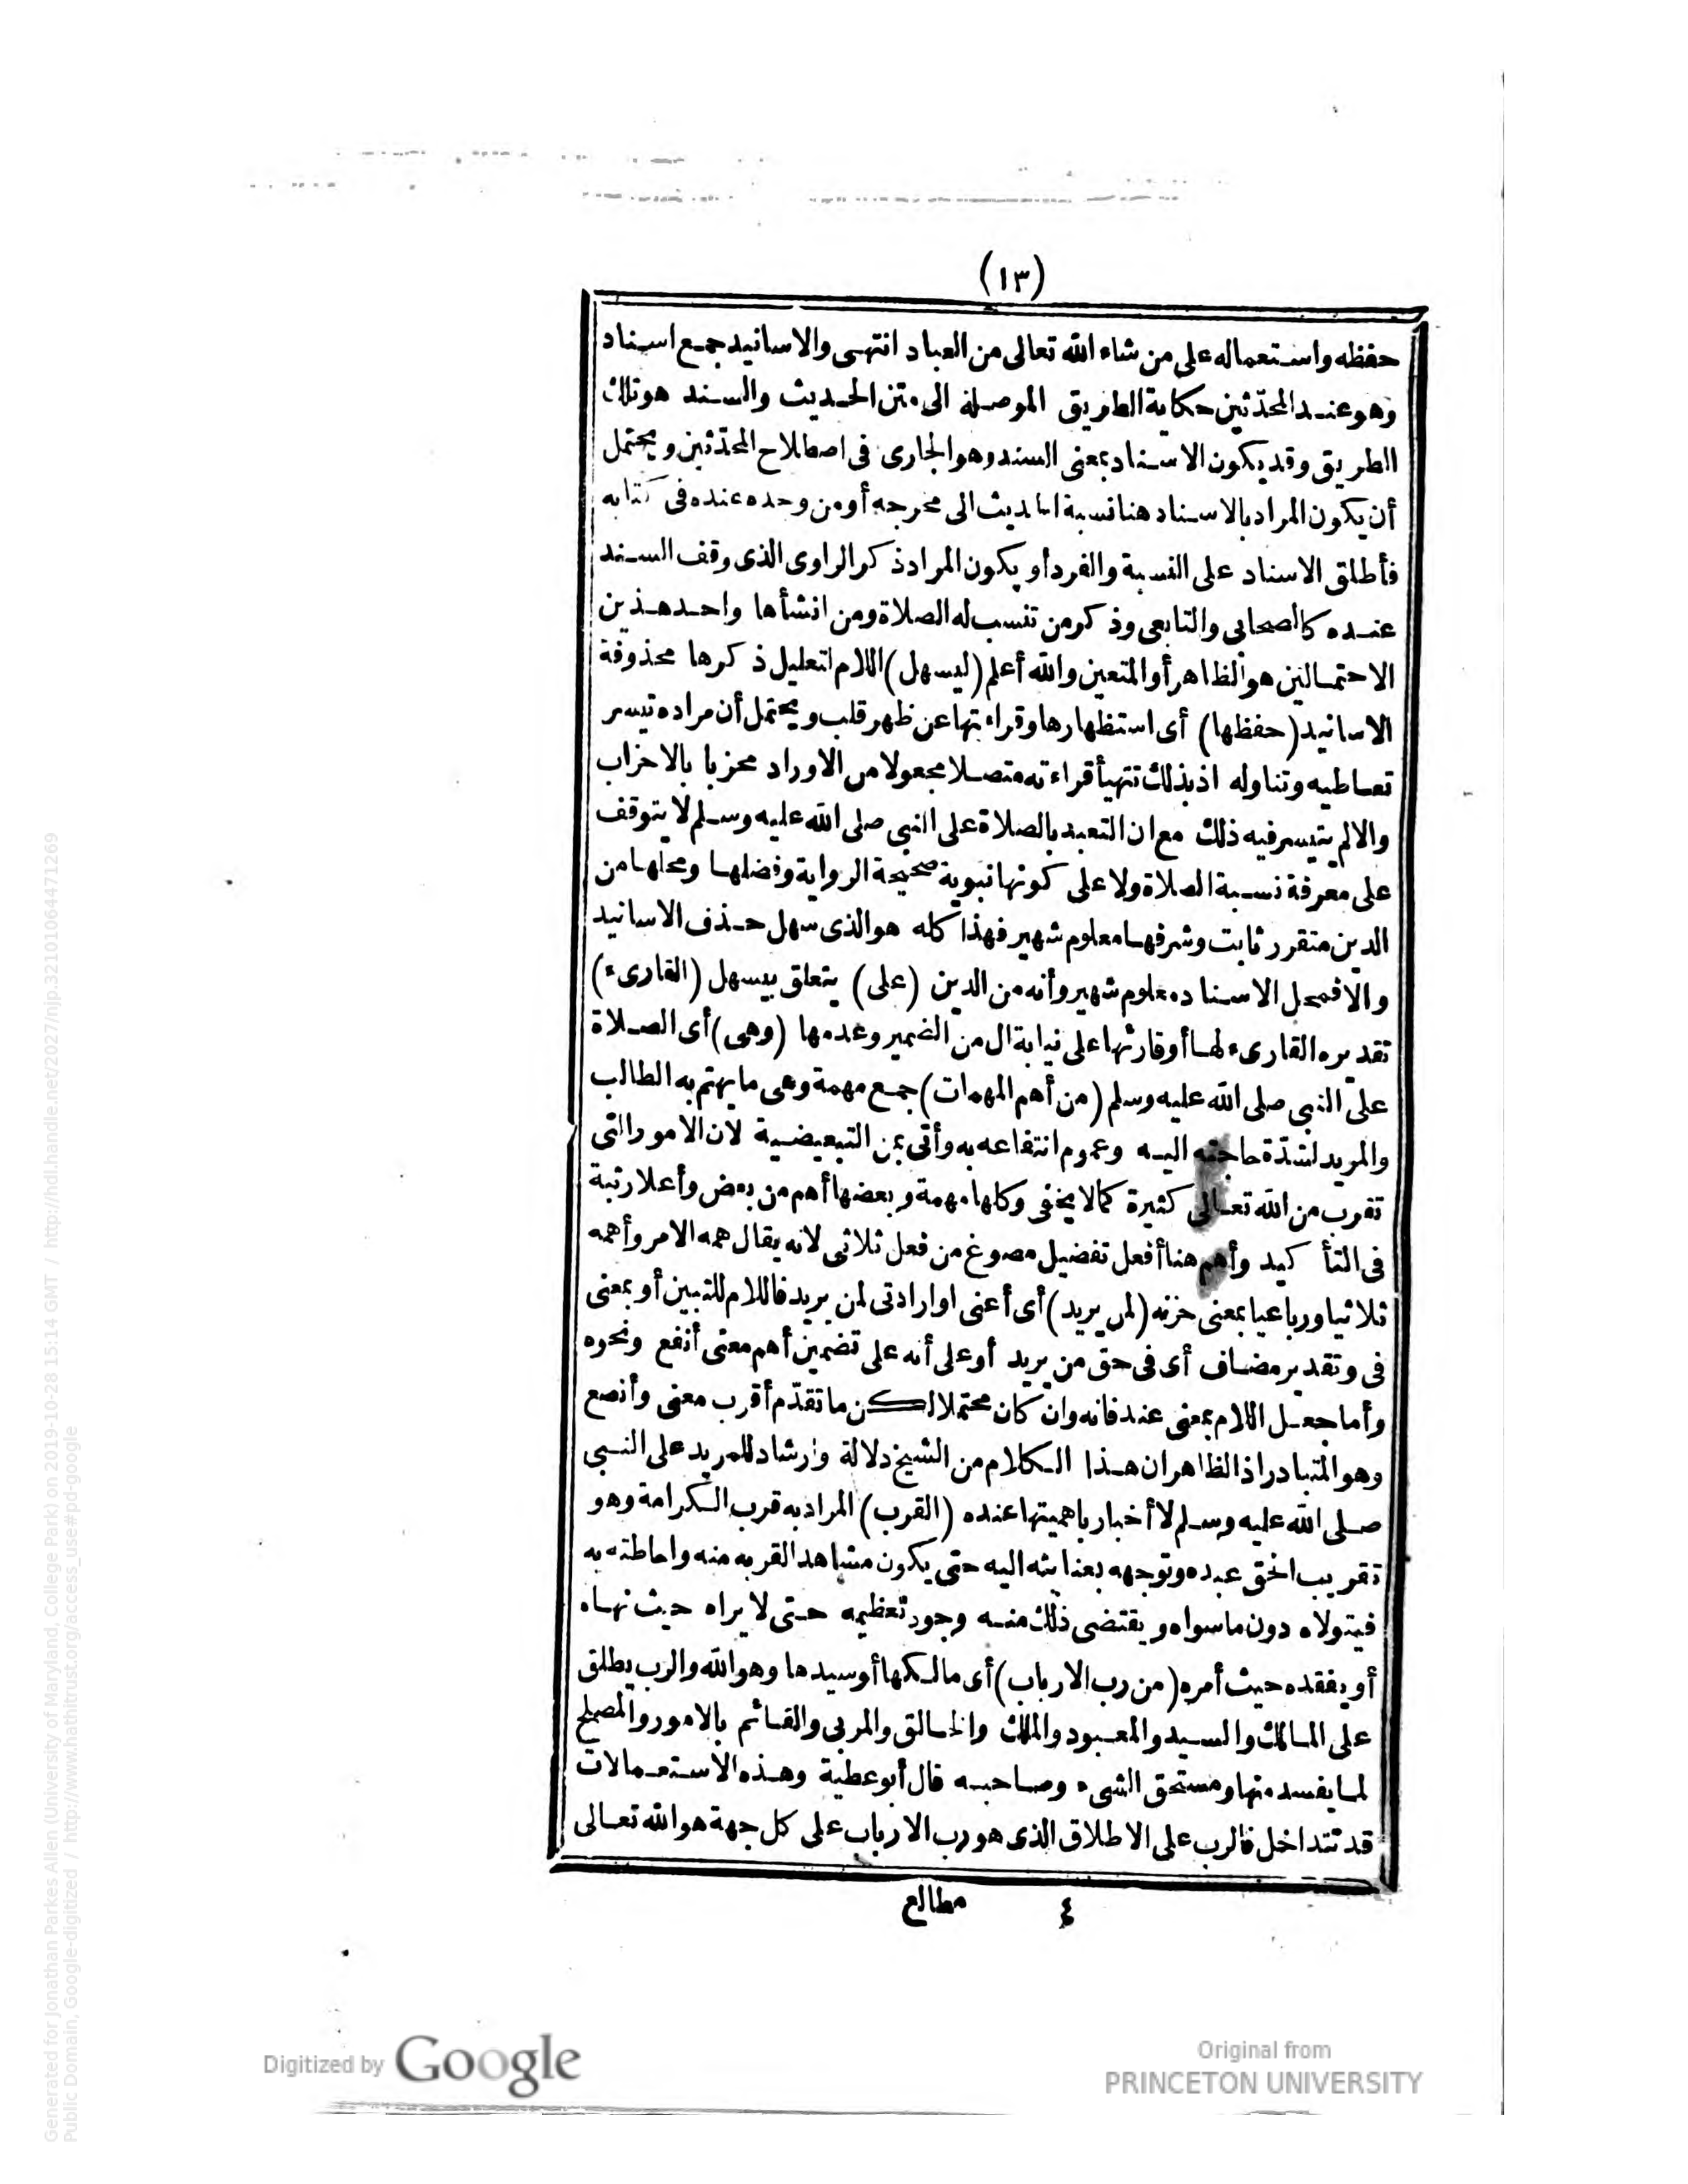 (١٣)
حفظه واستعماله على من شاء الله تعالى من العباد انتهى والاسانيد جمع اسناد
وهو عند المحدّثين حكاية الطريق الموصلة الى متن الحديث والسند هو تلك
الطريق وقد يكون الاسناد بمعنى السند وهو الجارى فى اصطلاح المحدّثين ويحتمل
أن يكون المراد بالاسناد هنا نسبة الحديث الى مخرجه أو من وحده عنده فى كتابه
فأطلق الاسناد على النسبة والفرد أو يكون المراد ذكر الراوى الذى وقف السند
عنده كالصحابى والتابعى وذكر من تنسب له الصلاة ومن انشأها واحد هذين
الاحتمالين هو الظاهر أو المتعين والله أعلم (ليسهل) اللام لتعليل ذكرها محذوفة
الاسانيد (حفظها) أى استظهارها وقراءتها عن ظهر قلب ويحتمل أن مراده تيسر
تعاطيه وتناوله اذ بذلك تتهيأ قراءته متصلا مجعولا من الاوراد محزبا بالاحزاب
والا لم يتيسر فيه ذلك مع ان التعبد بالصلاة على النبى صلى الله عليه وسلم لا يتوقف
على معرفة نسبة الصلاة ولا على كونها نبوية صحيحة الرواية وفضلها ومحلها من
الدين متقرر ثابت وشرفها معلوم شهير فهذا كله هو الذى سهل حذف الاسانيد
والا فمحل الاسناد معلوم شهير وأنه من الدين (على) يتعلق بيسهل (القارىء)
تقديره القارىء لها أو قارئها على نيابة ال من الضمير وعدمها (وهى) أى الصلاة
على النبى صلى الله عليه وسلم (من أهم المهمات) جمع مهمة وهى ما يهتم به الطالب
والمريد لشدّة حاجته اليه وعموم انتفاعه به وأتى بمن التبعيضية لان الامور التى
تقرب من الله تعالى كثيرة كما لا يخفى وكلها مهمة وبعضها أهم من بعض وأعلا رتبة
فى التأكيد وأهم هنا أفعل تفضيل مصوغ من فعل ثلاثى لانه يقال همه الامر وأهمه
ثلاثيا ورباعيا بمعنى حزنه (لمن يريد) أى أعنى او ارادتى لمن يريد فاللام للتبين أو بمعنى
فى وتقدير مضاف أى فى حق من يريد أو على أنه على تضمين أهم معنى أنفع ونحوه
وأما جعل اللام بمعنى عند فانه وان كان محتملا لكن ما تقدّم أقرب معنى وأنصع
وهو المتبادر اذ الظاهر ان هذا الكلام من الشيخ دلالة وارشاد للمريد على النبى
صلى الله عليه وسلم لا أخبار باهميتها عنده (القرب) المراد به قرب الكرامة وهو
تقريب الحق عبده وتوجهه بعنايته اليه حتى يكون مشاهدا لقربه منه واحاطته به
فيتولاه دون ما سواه ويقتضى ذلك منه وجود تعظيمه حتى لا يراه حيث نهاه
أو يفقده حيث أمره (من رب الارباب) أى مالكها أو سيدها وهو الله والرب يطلق
على المالك والسيد والمعبود والملك والخالق والمربى والقائم بالامور والمصلح
لما يفسد منها ومستحق الشىء وصاحبه قال أبو عطية وهذه الاستعمالات
قد تتداخل فالرب على الاطلاق الذى هو رب الارباب على كل جهة هو الله تعالى
٤ مطالع
Digitized by Google
Original from
PRINCETON UNIVERSITY
Generated for Jonathan Parkes Allen (University of Maryland, College Park) on 2019-10-28 15:14 GMT / http://hdl.handle.net/2027/njp.32101064471269
Public Domain, Google-digitized / http://www.hathitrust.org/access_use#pd-google